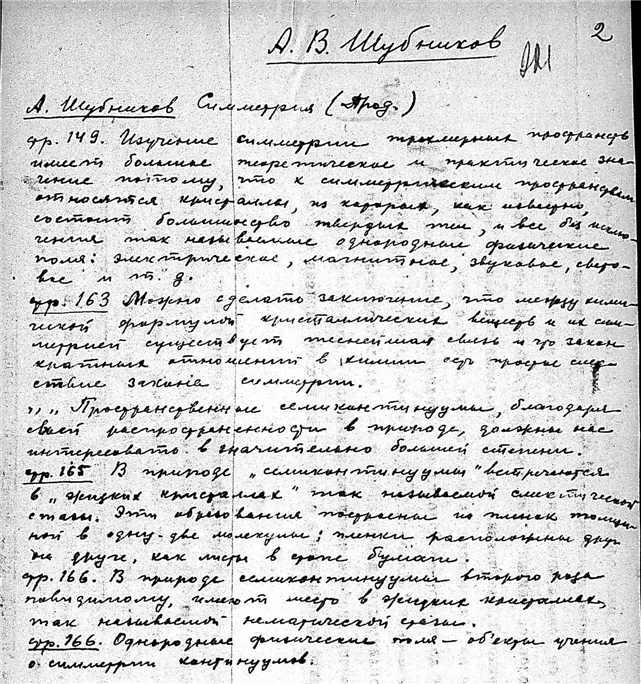 2
А. В. Шубников
А. Шубников Симметрия (Прод.)
стр. 149. Изучение симметрии трехмерных пространств
имеет большое теоретическое и практическое зна-
чение потому, что к симметрическим пространствам
относятся кристаллы, из которых, как известно,
состоит большинство твердых тел, и все без исклю-
чения так называемые однородные физические
поля: электрическое, магнитное, звуковое, свето-
вое и т. д.
стр. 163 Можно сделать заключение, что между хими-
ческой формулой кристаллических веществ и их сим-
метрией существует теснейшая связь и что закон
кратных отношений в химии есть простое след-
ствие закона симметрии.
„ „ Пространственные семиконтинуумы, благодаря
своей распространенности в природе, должны нас
интересовать в значительно большей степени.
стр. 165 В природе „семиконтинуумы" встречаются
в „жидких кристаллах" так называемой смектической
стазы. Эти образования построены из пленок толщи-
ной в одну-две молекулы; пленки расположены друг
на друге, как листы в стопе бумаги.
стр. 166. В природе семиконтинуумы второго рода
повидимому, имеют место в жидких кристаллах,
так называемой нематической стазы.
стр. 166. Однородные физические поля – об'екты учения
о симметрии континуумов.